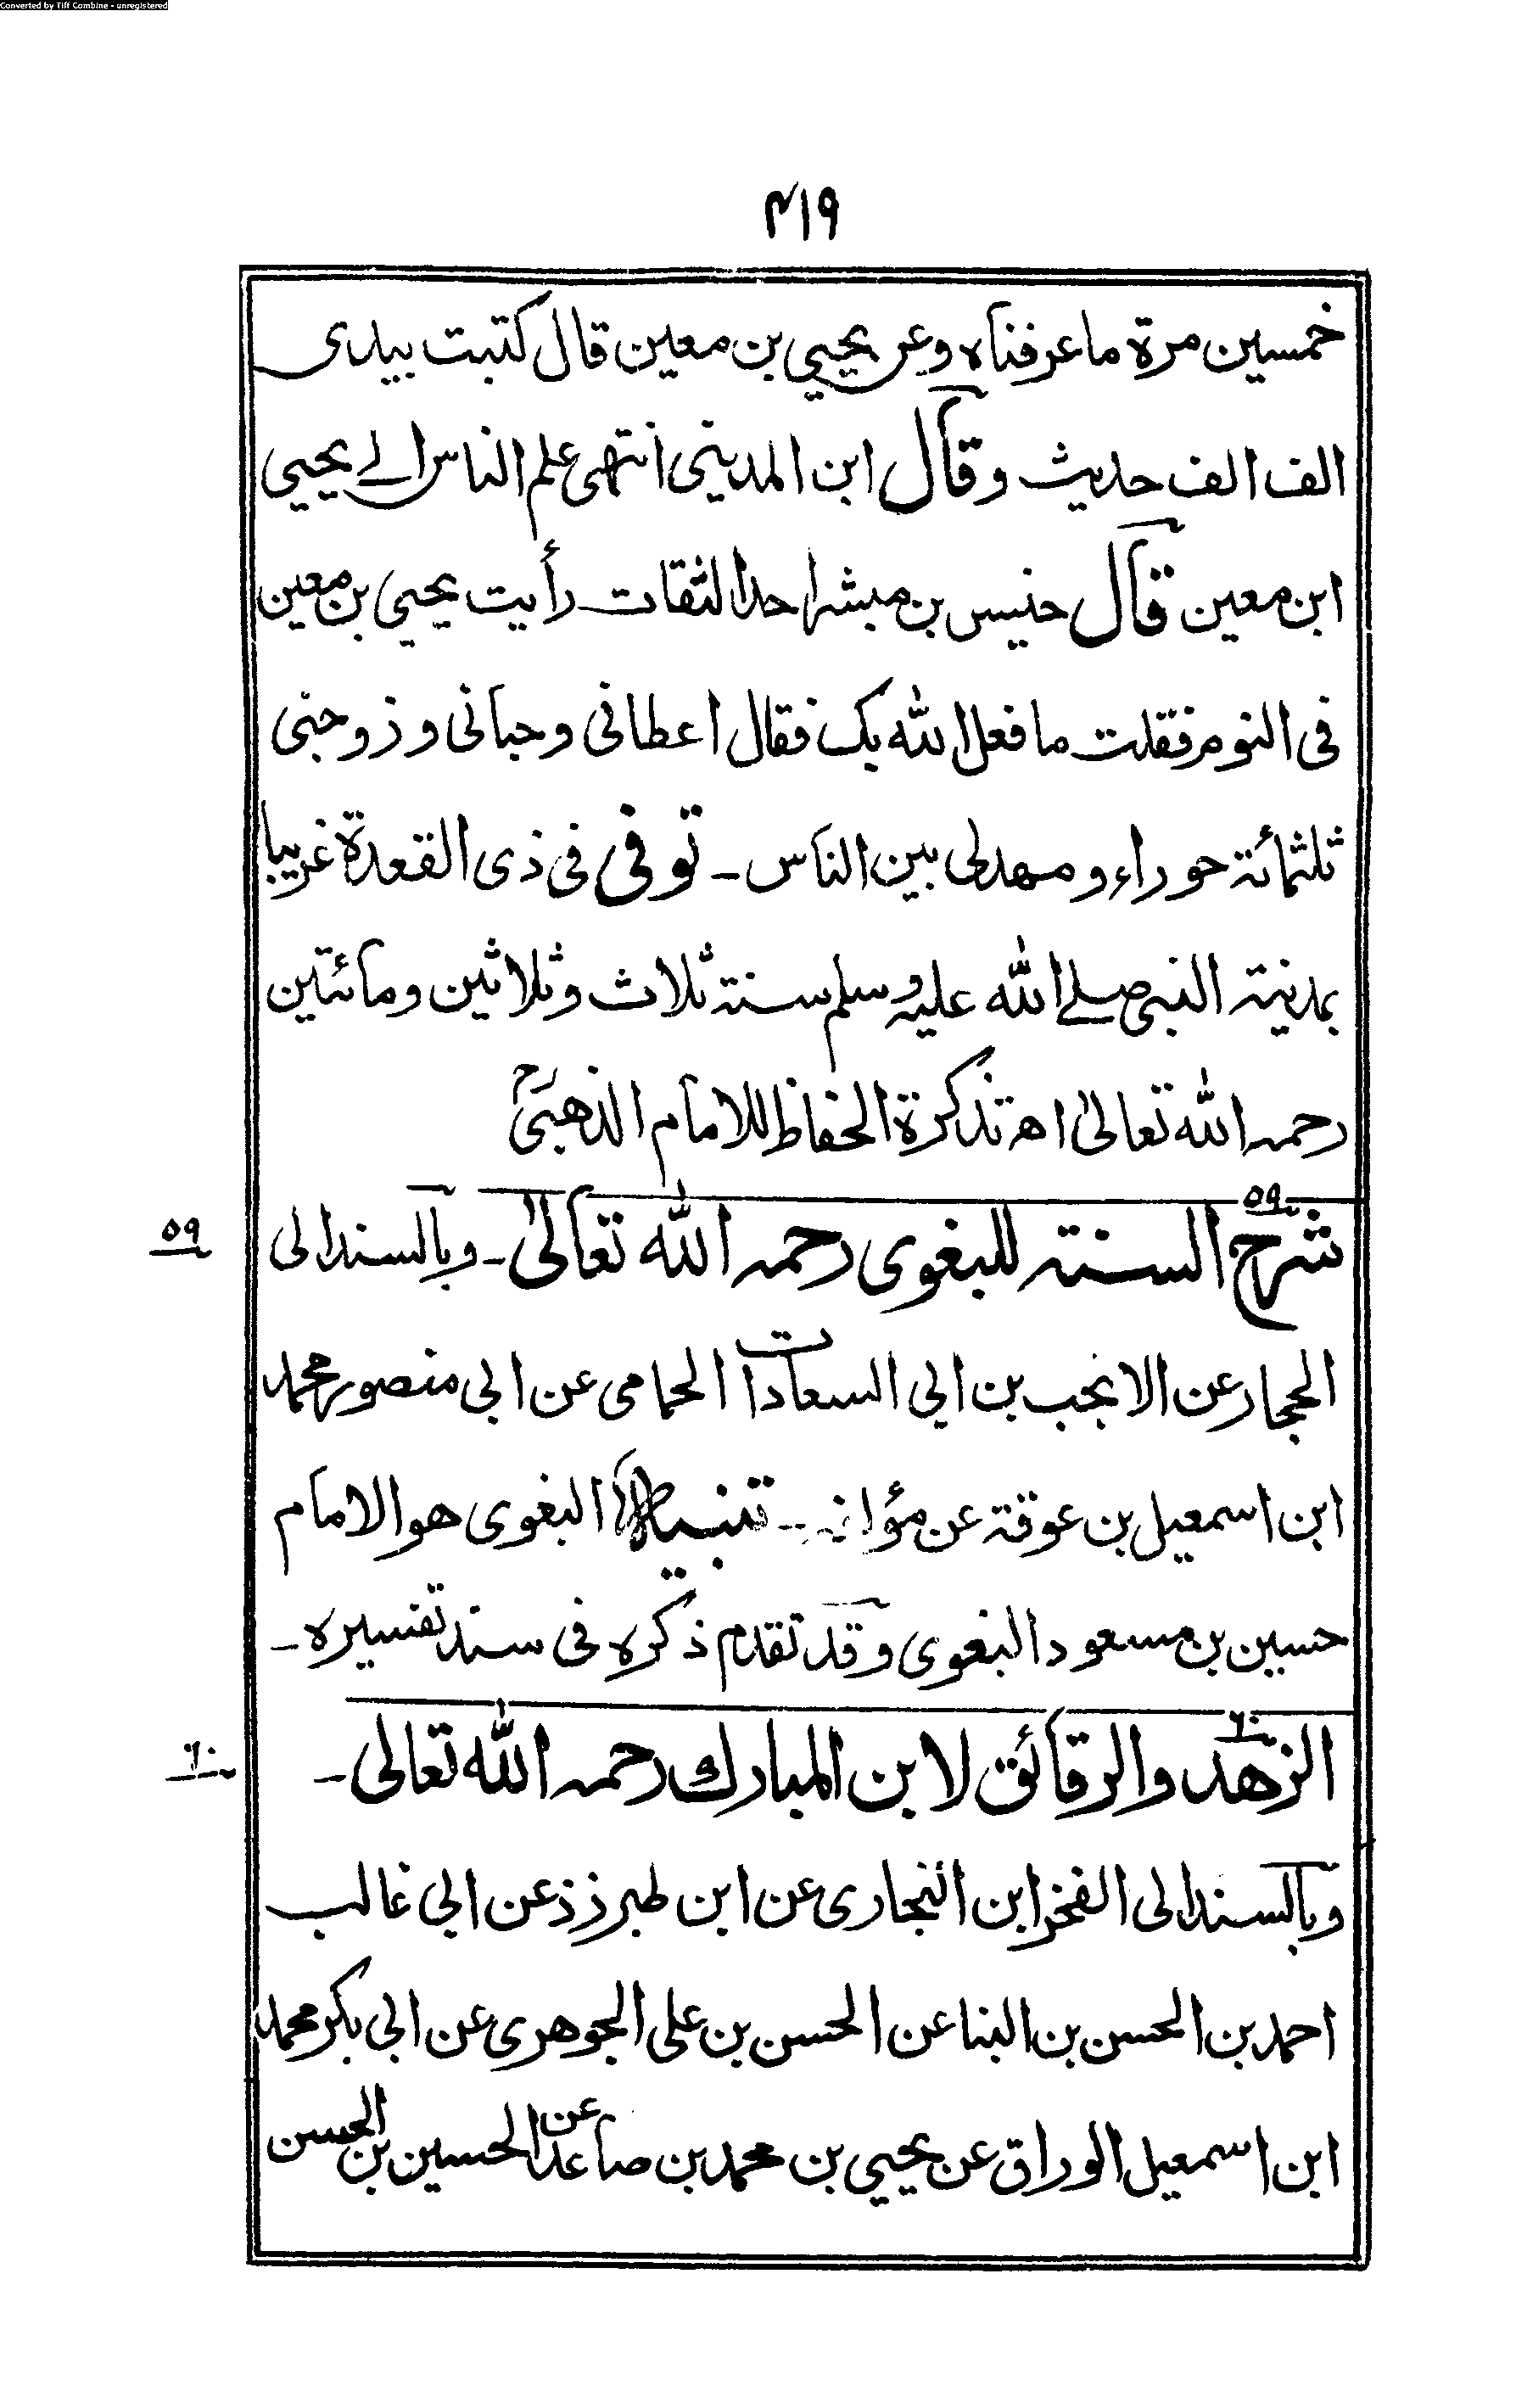 Converted by Tiff Combine - unregistered
۴۱۹
خمسين مرة ما عرفناه وعن يحيى بن معين قال كتبت بيدى
الف الف حديث وقال ابن المدينى انتهى علم الناس الى يحيى
ابن معين قال حنيس بن مبشر احد الثقات رأيت يحيى بن معين
فى النوم فقلت ما فعل الله بك فقال اعطانى وحبانى وزوجنى
ثلثمائة حوراء ومهدلى بين الناس - توفى فى ذى القعدة غريبا
بمدينة النبى صلى الله عليه وسلم سنة ثلاث وثلاثين ومائتين
رحمه الله تعالى اه تذكرة الحفاظ للامام الذهبىؒ
۵۹
شرح السنة للبغوى رحمه الله تعالى - وبالسند الى
۵۹
الحجار عن الانجب بن ابى السعادات الحمامى عن ابى منصور محمد
ابن اسمعيل بن عوقة عن مؤلفه - تنبيه البغوى هو الامام
حسين بن مسعود البغوى وقد تقدم ذكره فى سند تفسيره -
۶۰
الزهد والرقائق لابن المبارك رحمه الله تعالى -
۶۰
وبالسند الى الفخر ابن النجارى عن ابن طبرزذ عن ابى غالب
احمد بن الحسن بن البنا عن الحسن بن على الجوهرى عن ابى بكر محمد
ابن اسمعيل الوراق عن يحيى بن محمد بن صاعد عن الحسين بن الحسن